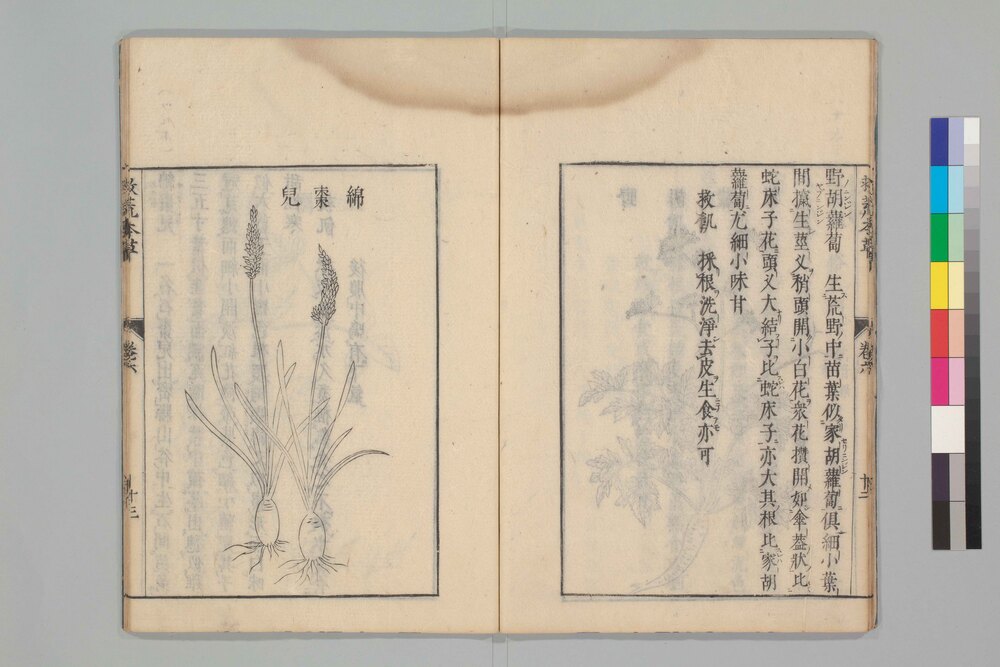 野胡蘿蔔　生荒野中苗葉似家胡蘿蔔俱細小葉
間攛生莖叉稍頭開小白花衆花攢開如傘蓋狀比
蛇床子花頭叉大結子比蛇床子亦大其根比家胡
蘿蔔尤細小味甘
救飢　採根洗淨去皮生食亦可
綿
棗
兒
救荒本草
卷六
十三